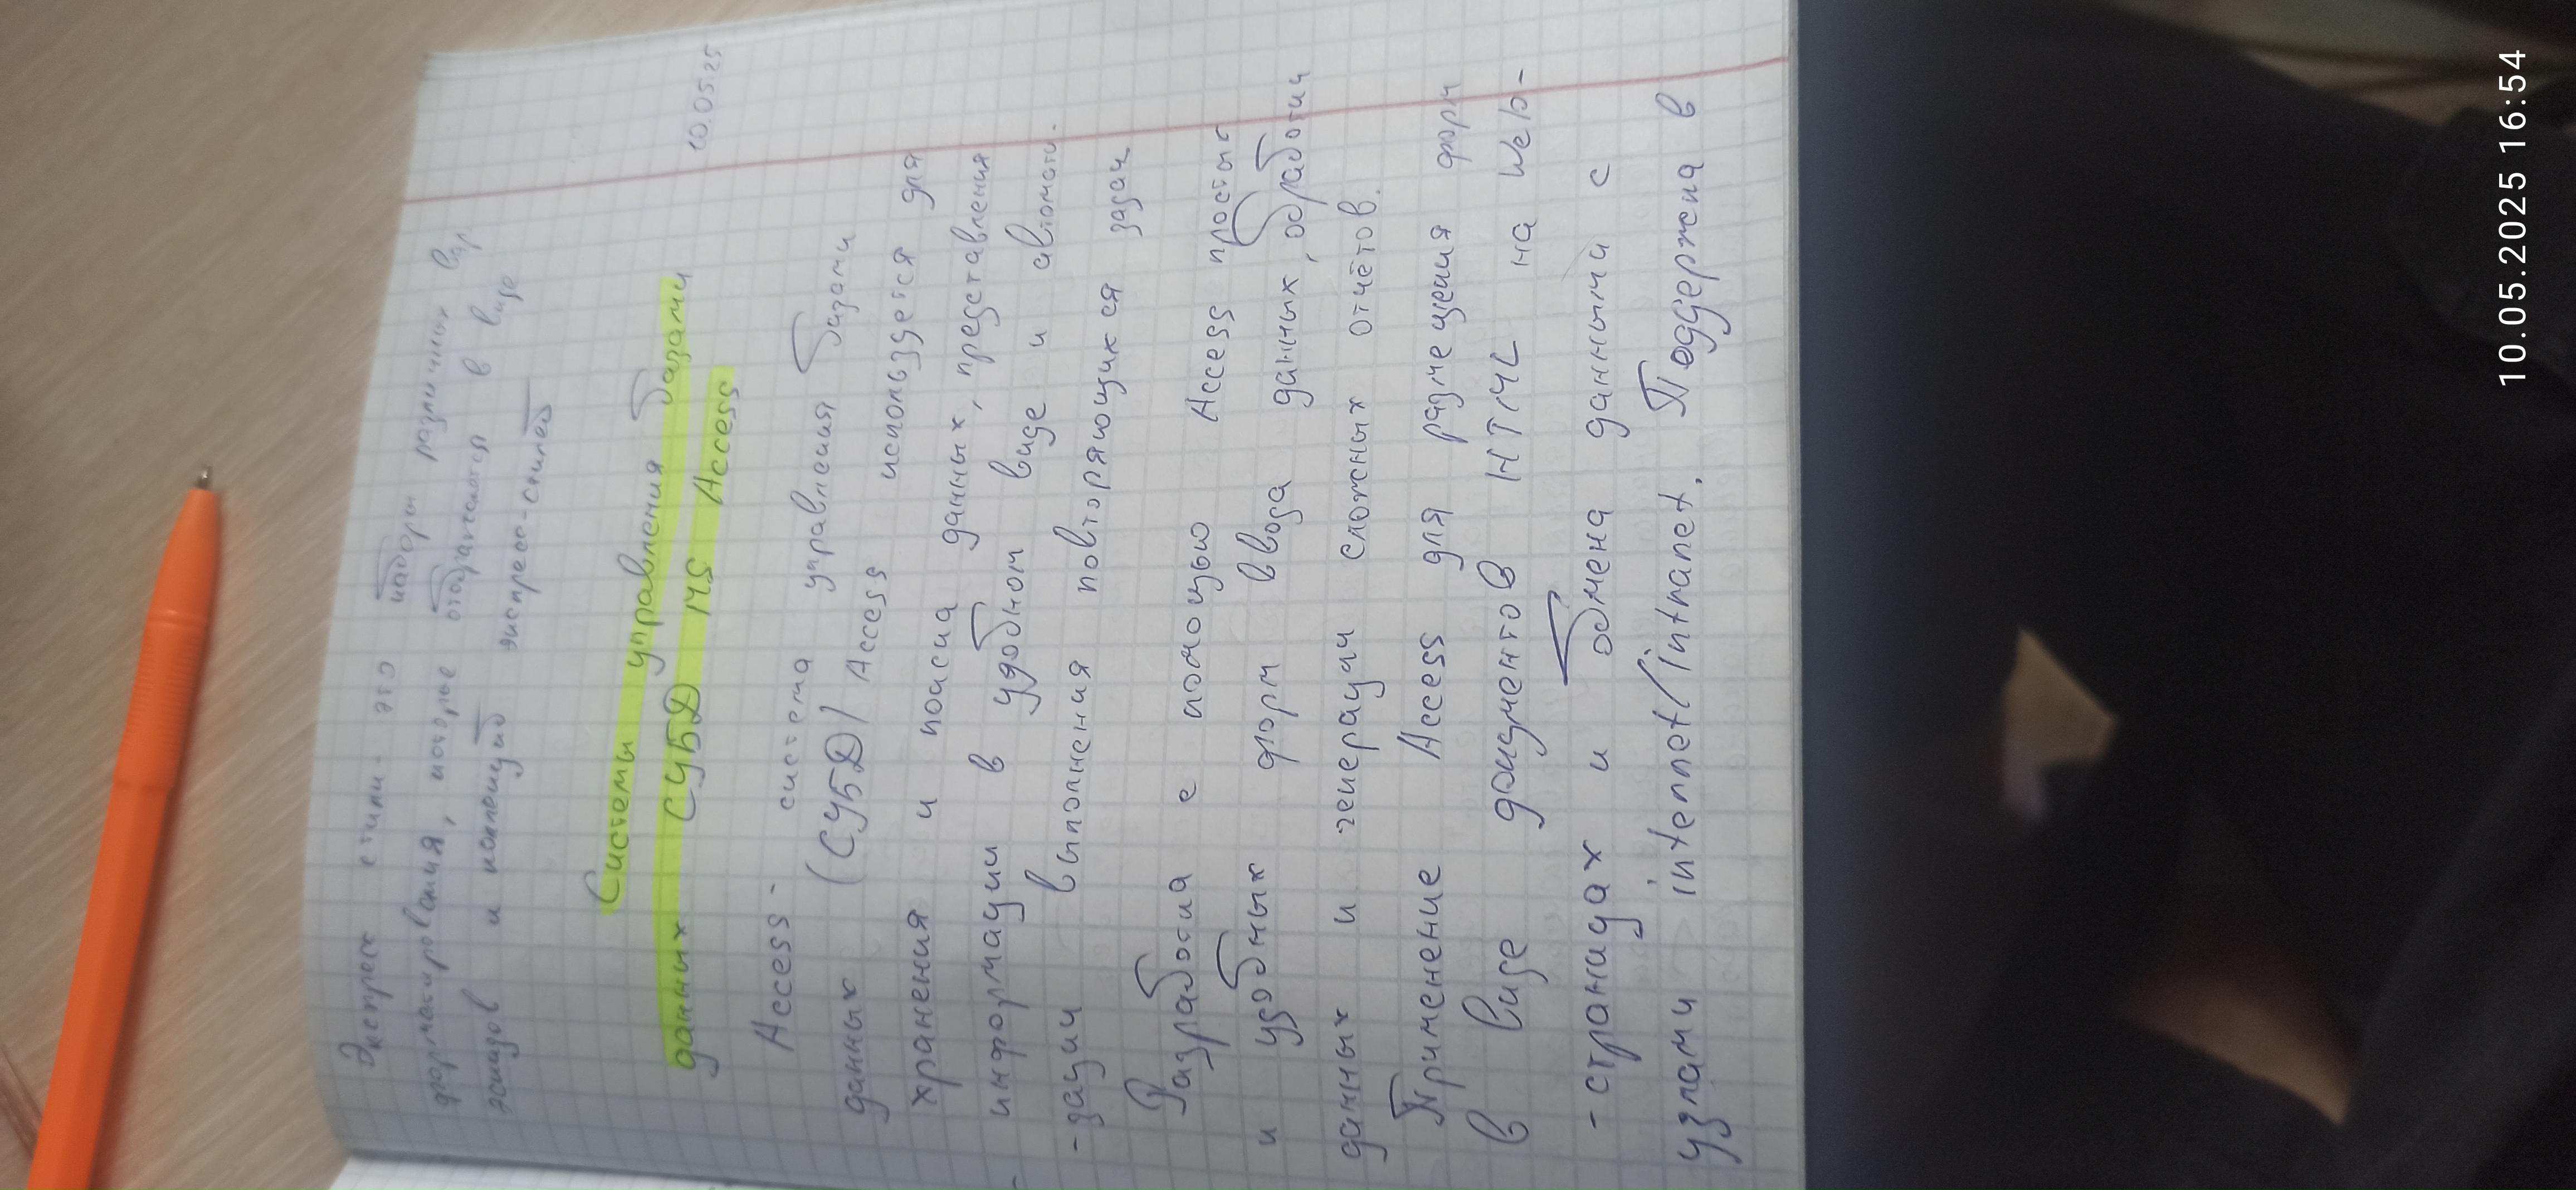 Экспресс стили - это наборы различных вар
форматирования, которые отображаются в виде
эскизов и коллекций экспресс-стилей
10.05.25
Системы управления базами
данных СУБД MS Access
Access - система управления базами
данных (СУБД) Access используется для
хранения и поиска данных, представления
информации в удобном виде и автомати.
-зации выполнения повторяющихся задач
Разработка с помощью Access простых
и удобных форм ввода данных, обработки
данных и генерации сложных отчётов.
Применение Access для размещения форм
в виде документов HTML на Web-
-страницах и обмена данными с
узлами internet/intranet. Поддержка в
10.05.2025 16:54